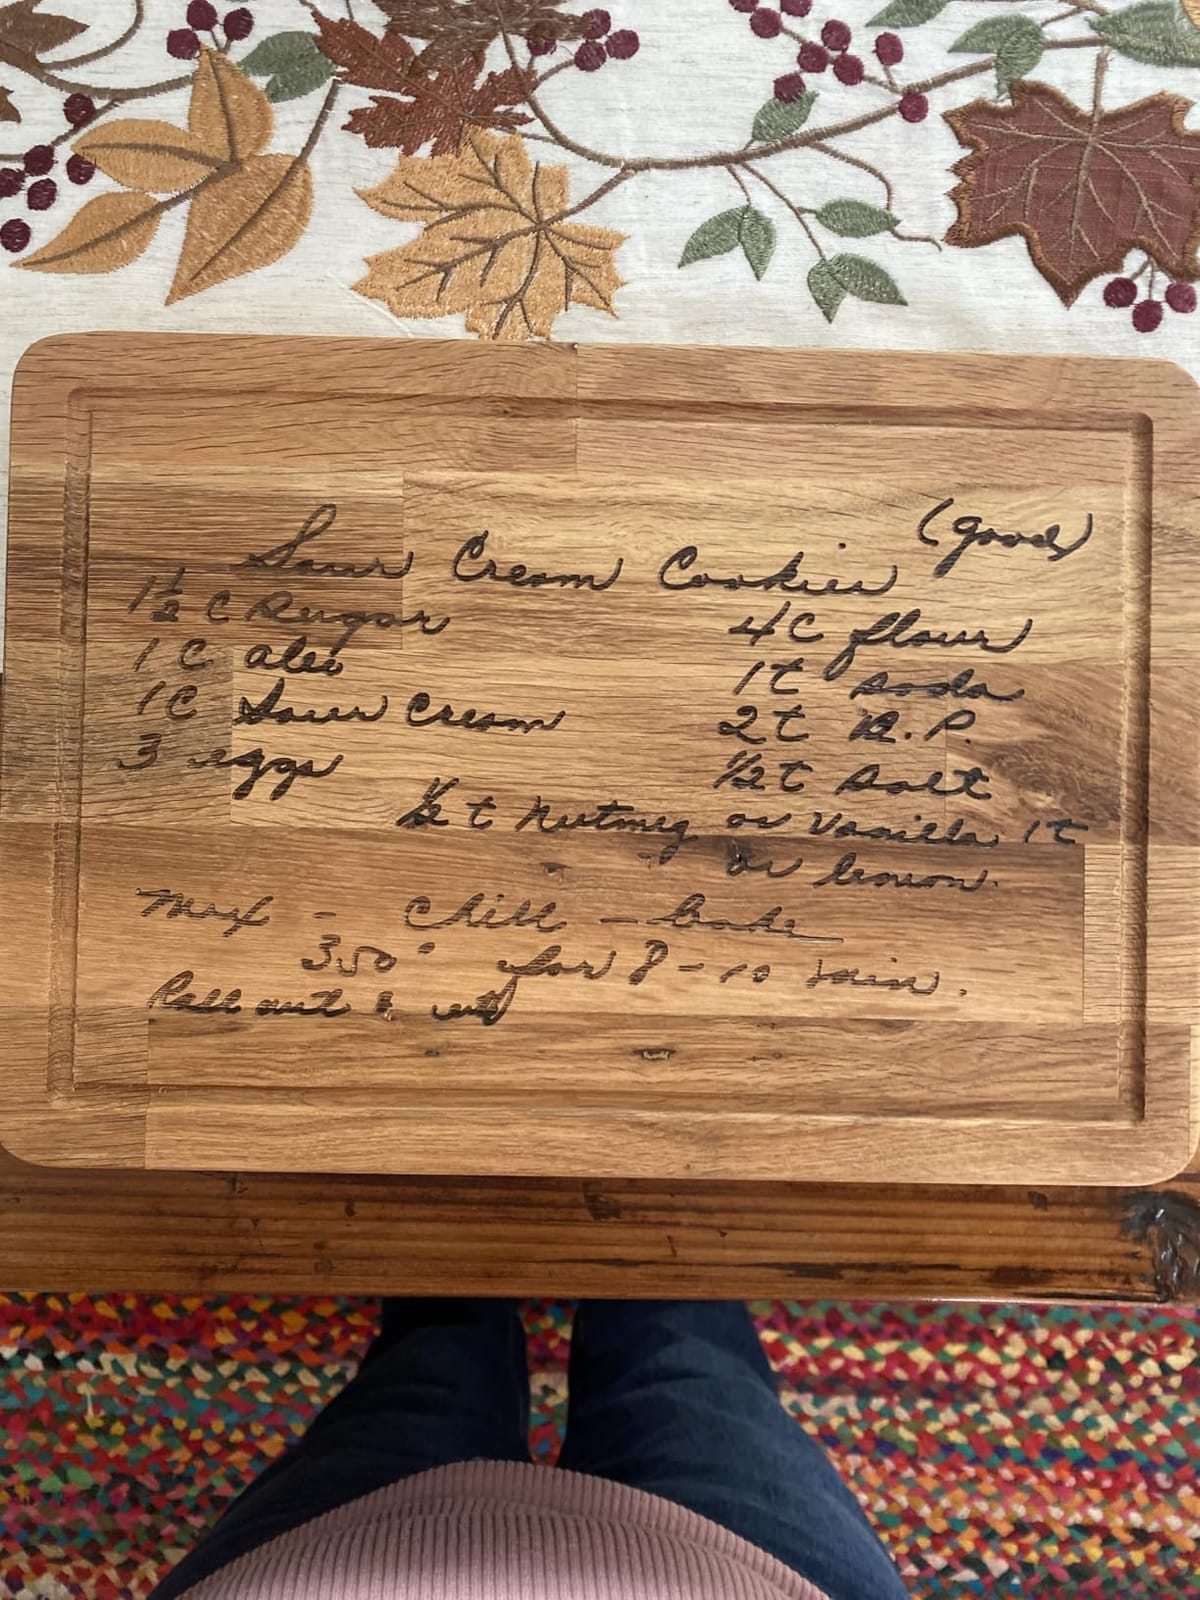 (good)
Sour Cream Cookies
1 1/2 C Sugar
1 C oleo
1C Sour Cream
3 eggs
4C flour
1t soda
2t B.P.
1/2t salt
1/2 t Nutmeg or Vanilla 1t
or lemon.
Mix - Chill - bake
350° for 8-10 min.
Roll out &